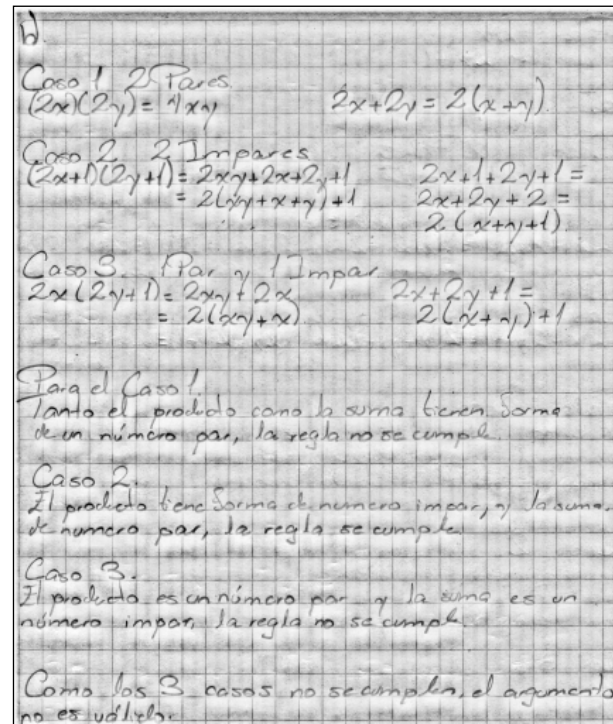 b)
Caso 1 2 Pares
(2x)(2y) = 4xy 2x+2y = 2(x+y).
Caso 2 2 Impares
(2x+1)(2y+1) = 2xy+2x+2y+1 2x+1+2y+1 =
= 2(xy+x+y)+1 2x+2y+2 =
2(x+y+1)
Caso 3. 1 Par y 1 Impar
2x(2y+1) = 2xy+2x 2x+2y+1 =
= 2(xy+x) 2(x+y)+1
=
Para el Caso 1.
Tanto el producto como la suma tienen forma
de un número par, la regla no se cumple.
Caso 2.
El producto tiene forma de numero impar, y la suma,
de numero par, la regla se cumple.
Caso 3.
El producto es un número par y la suma es un
número impar, la regla no se cumple.
Como los 3 casos no se cumplen, el argumento
no es válido.